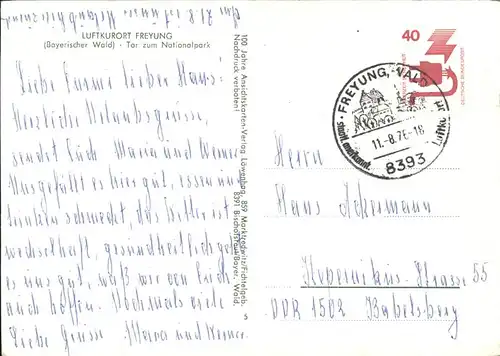 Am 21.8 ist unser Urlaub zu Ende
LUFTKURORT FREYUNG
(Bayerischer Wald) - Tor zum Nationalpark
Liebe lieber Hans!
Herzliche Urlaubsgrüsse,
sendet Euch Maria und Werner.
gefällt es hier gut, essen und
trinken schmeckt, das Wetter ist
wechselhaft, gesundheitlich geht
es uns gut, was wir von Euch
auch hoffen. Nochmals viele
liebe Grüsse Maria und Werner.
100 Jahre Ansichtskarten-Verlag Löwenhag, 859 Marktredwitz/Fichtelgeb.
Nachdruck verboten! 8391 Bischofsreut/Bayer. Wald.
5
40
DEUTSCHE BUNDESPOST
FREYUNG, WALD
staatl. anerkannt.
Luftkurort
11.-8.76-18
8393
Herrn
Hans Ackermann
Kopernikus-Strasse 55
DDR 1502 Babelsberg